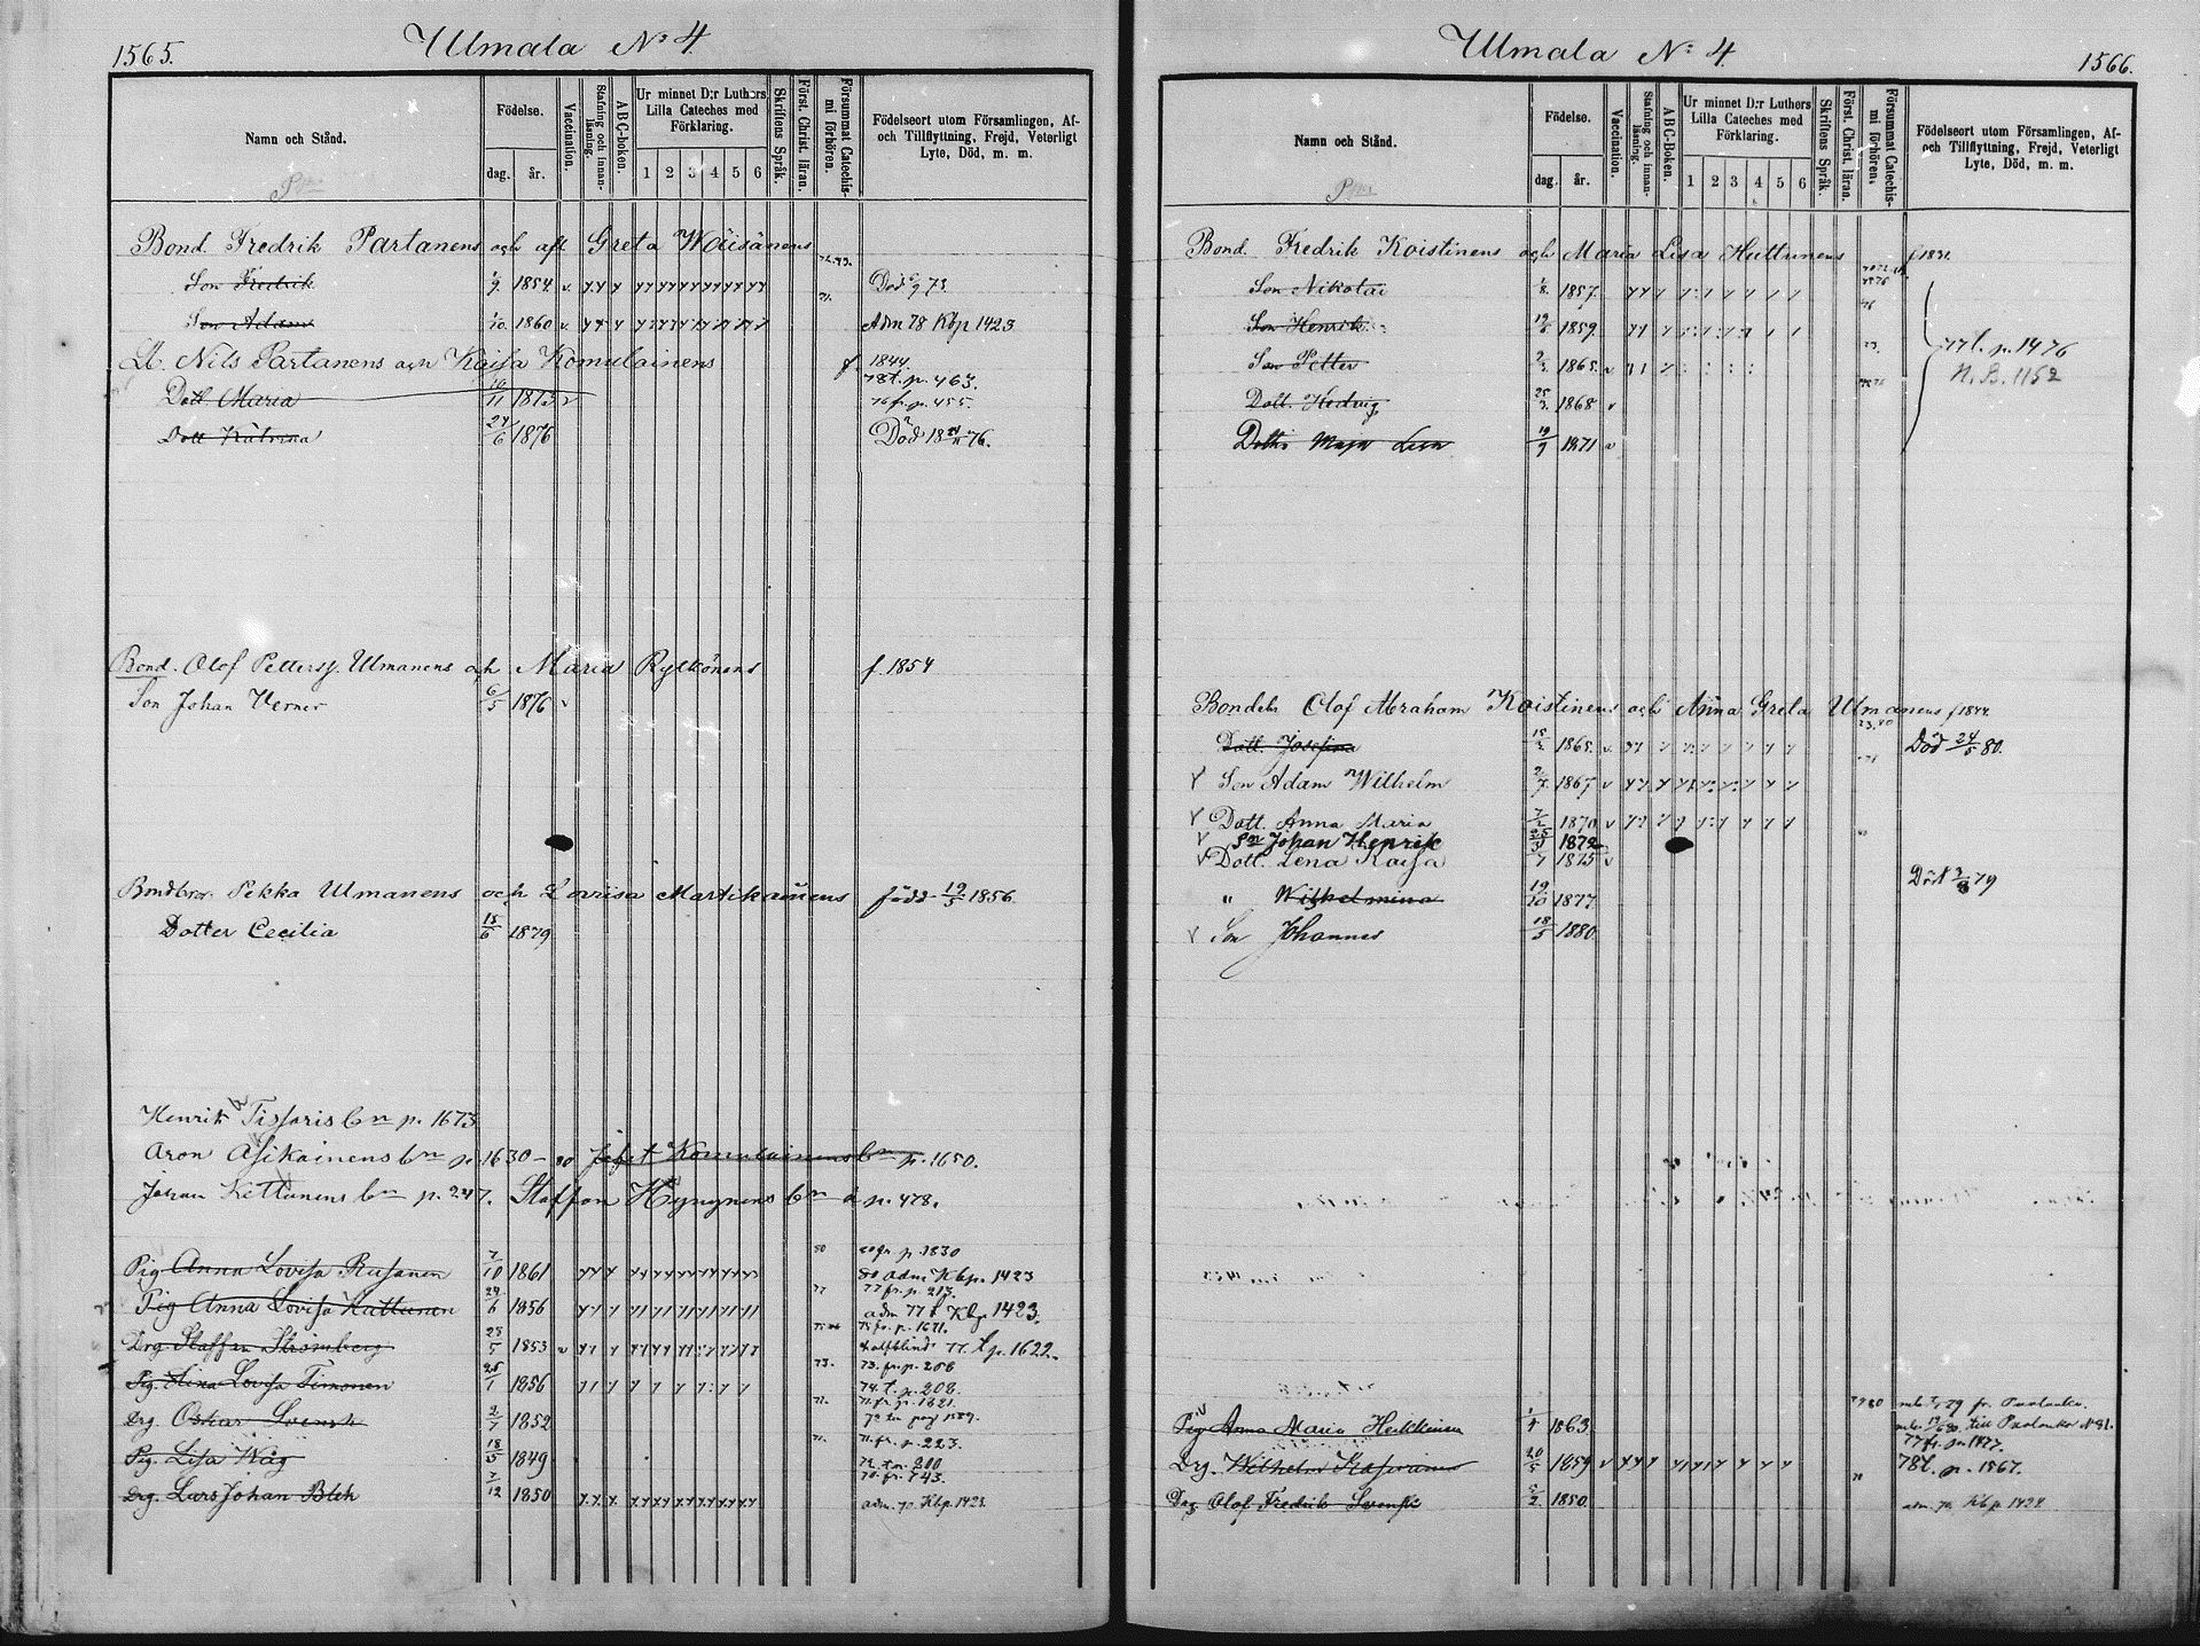 1565.
Ulmala No 4.
Namn och Stånd.
Födelse.
dag.
år.
Vaccination.
Stafning och innan-läsning.
A B C-boken.
Ur minnet D:r Luthers
Lilla Cateches med
Förklaring.
1 2 3 4 5 6
Skriftens Språk.
Först. Christ. läran.
Försummat Catechis-
mi förhören.
Födelseort utom Församlingen, Af-
och Tillflyttning, Frejd, Veterligt
Lyte, Död, m. m.
Bond. Fredrik Partanens och afl Greta Wäisänens
72.73.
Son Fredrik 1/9 1854 v. Död 73.
71.
Son Adam 1/10 1860 v. Adm 78 Kbp 1423
Lt. Nils Partanens och Kaisa Komulainens f. 1844.
78 t. p. 463.
Dott. Maria 19/11 1873 v 76 fr. p. 455.
Dott Katrina 24/6 1876 Död 18 76.
Bond. Olof Petterss. Ulmanens och Maria Rytkönens f. 1854
Son Johan Verner 6/5 1876 v
Bondbror Pekka Ulmanens och Loviisa Martikainens född 19/5 1856.
Dotter Cecilia 15/6 1879
Henrik Tissaris bn p. 1673
Aron Asikainens bn p. 1630 - 80 Jafet Komulainens bn p. 1650.
Johan Kettunens bn p. 247. Staffan Hyvynens bn p. 478.
80 80 fr. p. 1830
Pig Anna Lovisa Rusanen 7/10 1861 80 adm Kbp. 1423
77 77 fr. p. 213.
Pig Anna Lovisa Kattunen 29/6 1856 adm 77 Kbp 1423.
75 fr. p. 1671.
Drg. Staffan Strömberg 28/5 1853 v halfblind 77. t. p. 1622.
73. 73. fr. p. 206
Pig. Lovisa Timonen 25/1 1856 74. t. p. 208.
71. 71. fr. p. 1821.
Drg. Oskar Svensk 2/7 1852 72 1589.
71. 71. fr. p. 223.
Pig. Lisa Wäg 18/5 1849 72. 200
70. fr. 743.
Drg. Lars Johan Bleh 7/12 1850 adm. 70. Kbp. 1423.
Ulmala No 4.
1566.
Namn och Stånd.
Födelse.
dag.
år.
Vaccination.
Stafning och innan-läsning.
A B C-Boken.
Ur minnet D:r Luthers
Lilla Cateches med
Förklaring.
1 2 3 4 5 6
Skriftens Språk.
Först. Christ. läran.
Försummat Catechis-
mi förhören.
Födelseort utom Församlingen, Af-
och Tillflyttning, Frejd, Veterligt
Lyte, Död, m. m.
Bond. Fredrik Koistinens och Maria Lisa Huttunens f 1831.
Son Nikolai 1/8 1857.
76
Son Henrik 1859.
Son Petter 1865. v 77 t. p. 1476
Dott. Hedvig 25/3 1868 v N. B. 1152
Dottr Maja Lisa 19/9 1871 v
Bondeb Olof Abraham Koistinens och Anna Greta Ulmanens f 1844.
73.80
Dott. Josefina 1865. v. Död 24/5 80.
Son Adam Wilhelm 2/7 1867 v
Dott. Anna Maria 1870 v
Sn Johan Henrik 1872
Dott. Lena Kaisa 1875 v
" Wilhelmina 19/10 1877 Död 79
Son Johannes 18/5 1880.
79 80 79 fr. Puolanka.
Pig Anna Maria Heikkinen 1863 till Puolanka N 81.
77 fr. p. 1477.
Drg. Wilhelm 20/5 1859 v 78 t. p. 1567.
Drg Olof Fredrik Svensk 1850. adm. 70. Kbp. 1424